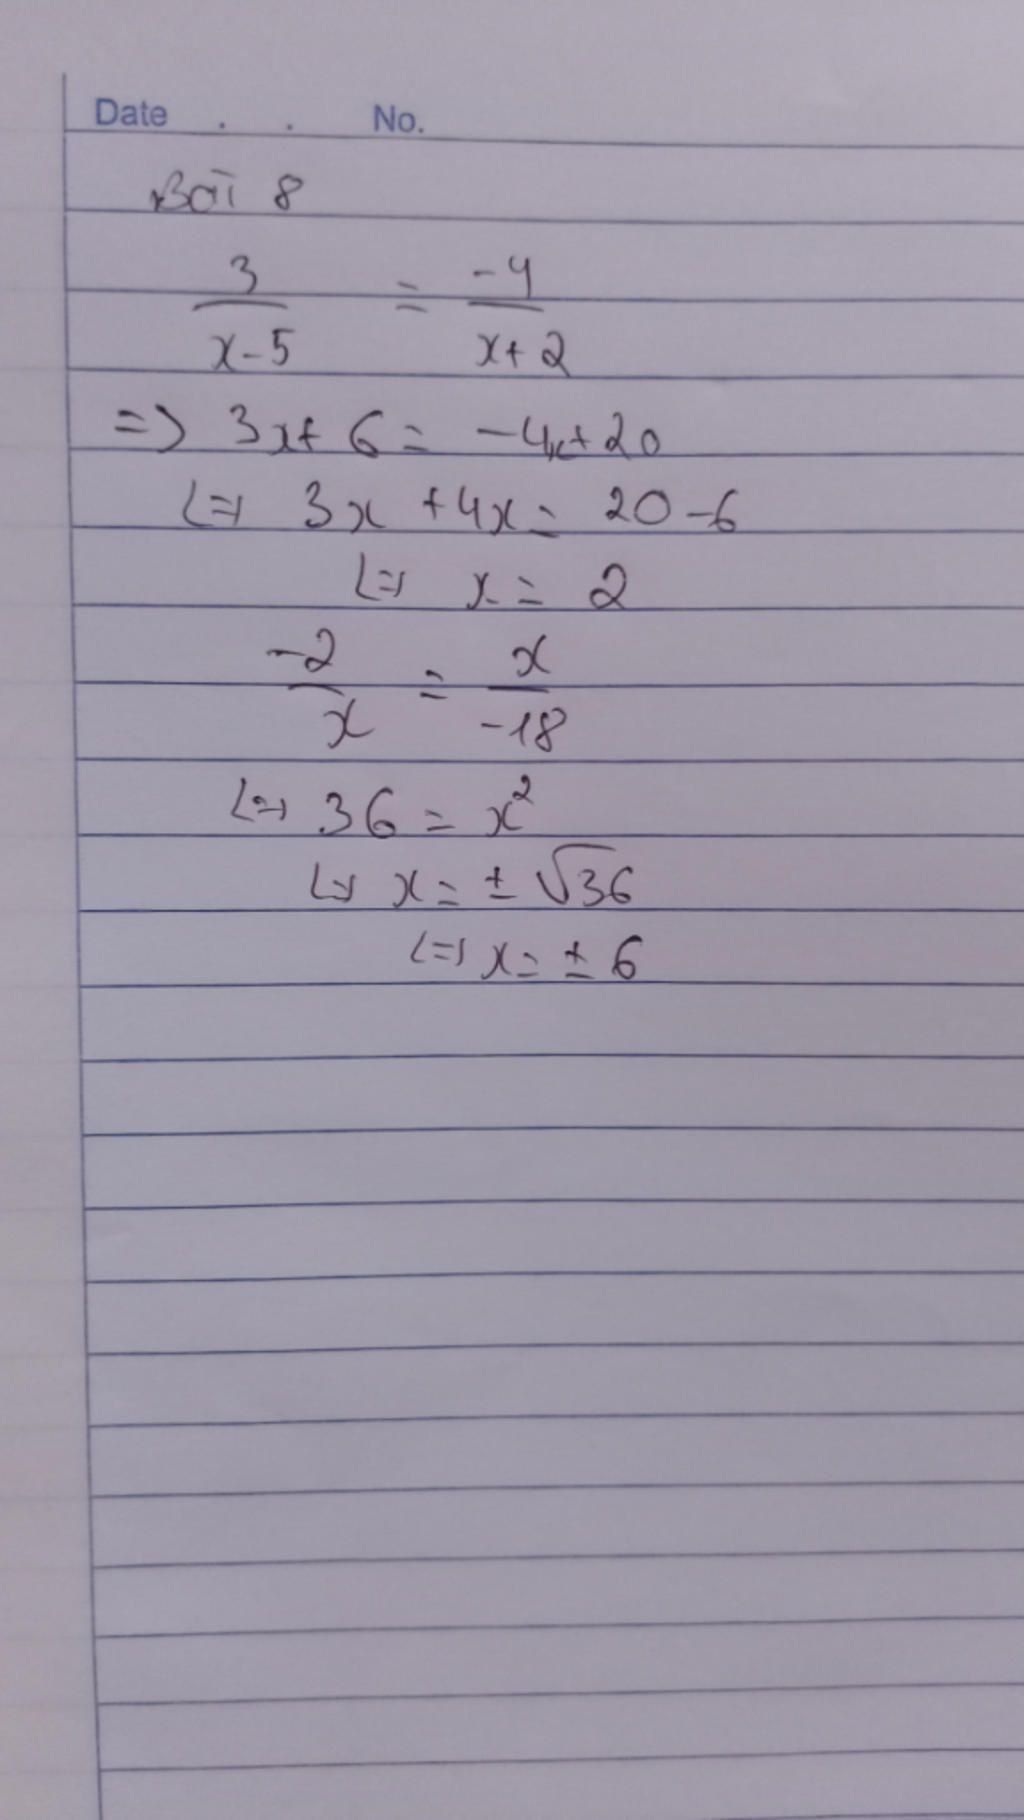 Date . . No.
Bài 8
3/(x-5) = -4/(x+2)
=> 3x+6 = -4x+20
<=> 3x +4x = 20-6
<=> x = 2
-2/x = x/-18
<=> 36 = x²
<=> x = ± √36
<=> x = ± 6